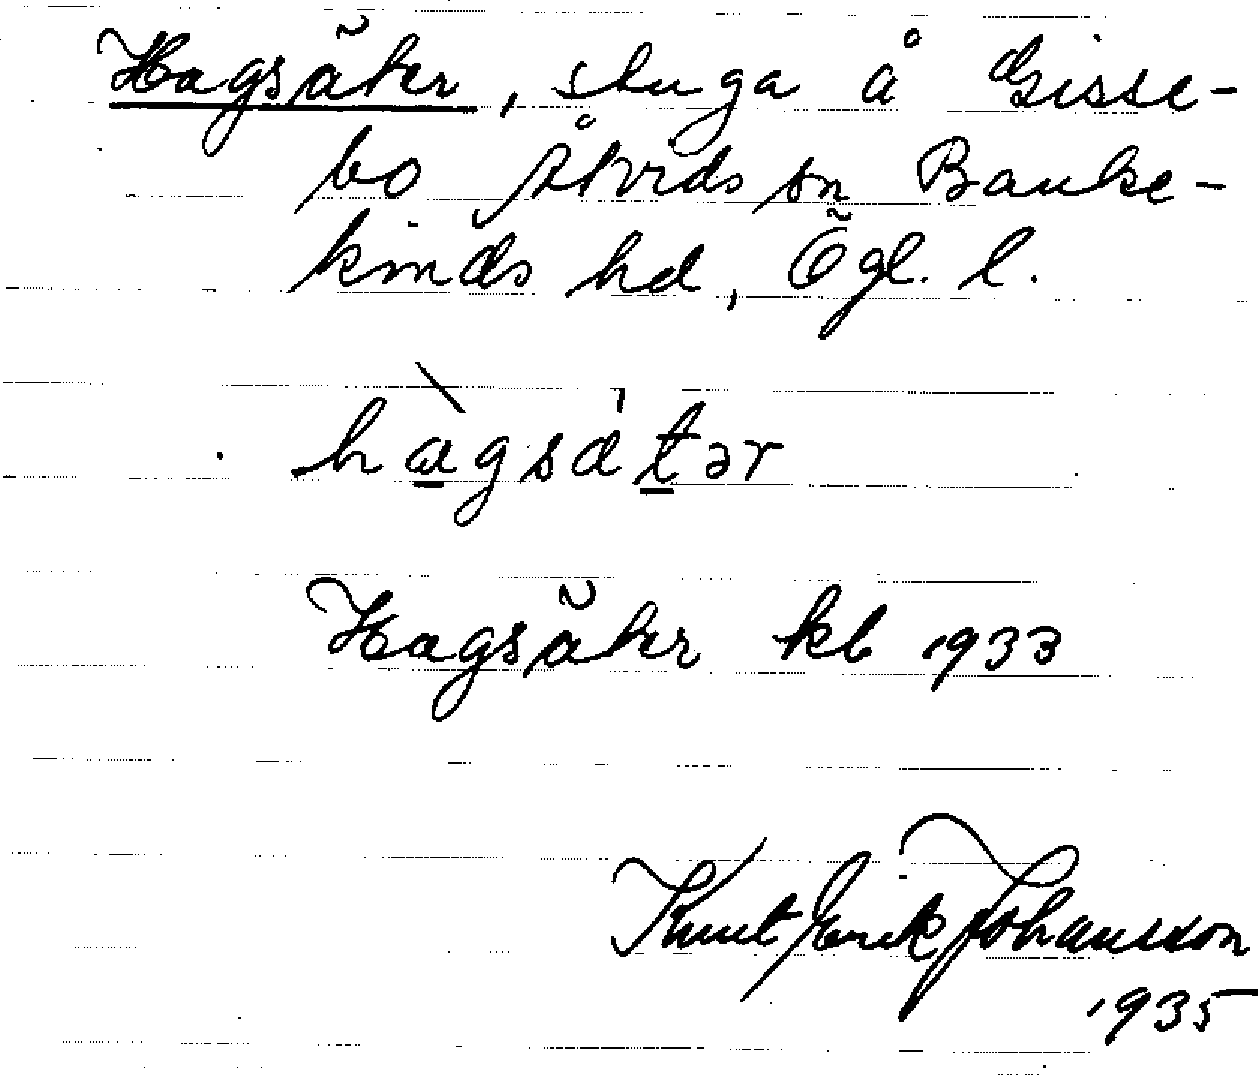 Hagsäter, stuga å Gisse-
bo Åtvids sn Banke-
kinds hd, Ögl. l.
hàgsátər
Hagsäter kb 1933
Knut Erik Johansson
1935